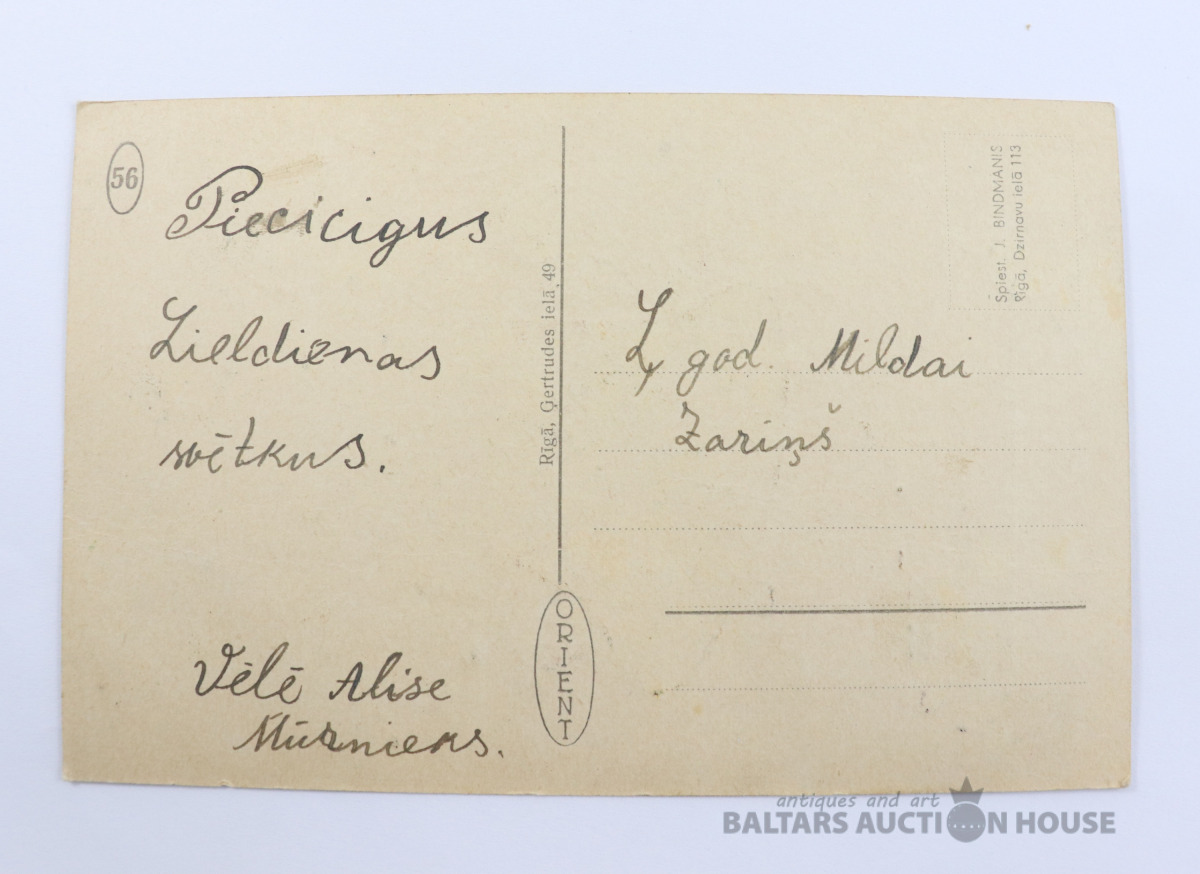 56
Piecicigus
Lieldienas
svētkus.
Vēlē Alise
Mūrnieks.
Rīgā, Ģertrudes ielā 49
ORIENT
Spiest. J. BINDMANIS
Rīgā, Dzirnavu ielā 113
L. god. Mildai
Zariņš
antiques and art
BALTARS AUCTION HOUSE